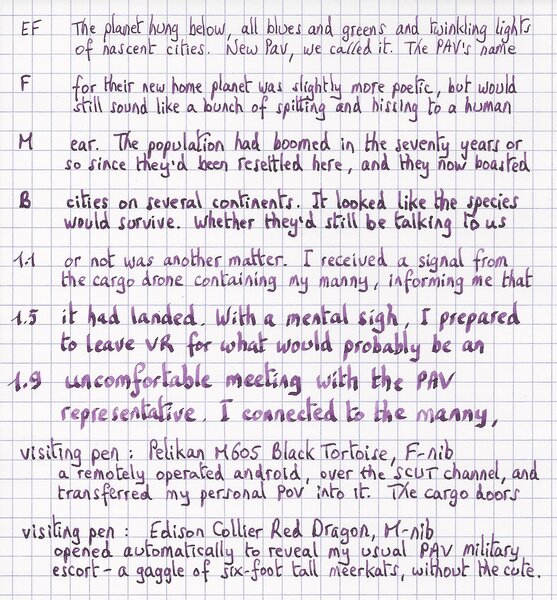 EF The planet hung below, all blues and greens and twinkling lights
of nascent cities. New Pav, we called it. The PAV's name
F for their new home planet was slightly more poetic, but would
still sound like a bunch of spitting and hissing to a human
M ear. The population had boomed in the seventy years or
so since they'd been resettled here, and they now boasted
B cities on several continents. It looked like the species
would survive. Whether they'd still be talking to us
1.1 or not was another matter. I received a signal from
the cargo drone containing my manny, informing me that
1.5 it had landed. With a mental sigh, I prepared
to leave VR for what would probably be an
1.9 uncomfortable meeting with the PAV
representative. I connected to the manny,
visiting pen : Pelikan M605 Black Tortoise, F-nib
a remotely operated android, over the SCUT channel, and
transferred my personal POV into it. The cargo doors
visiting pen : Edison Collier Red Dragon, M-nib
opened automatically to reveal my usual PAV military
escort – a gaggle of six-foot tall meerkats, without the cute.